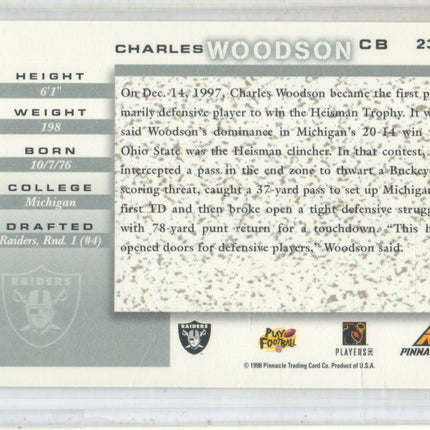 CHARLES WOODSON CB 23
HEIGHT
6'1"
WEIGHT
198
BORN
10/7/76
COLLEGE
Michigan
DRAFTED
Raiders, Rnd. 1 (#4)
On Dec. 14, 1997, Charles Woodson became the first p
marily defensive player to win the Heisman Trophy. It w
said Woodson's dominance in Michigan's 20-14 win
Ohio State was the Heisman clincher. In that contest,
intercepted a pass in the end zone to thwart a Buckey
scoring threat, caught a 37-yard pass to set up Michigan
first TD and then broke open a tight defensive strugg
with 78-yard punt return for a touchdown. "This h
opened doors for defensive players," Woodson said.
RAIDERS
RAIDERS
PLAY FOOTBALL
PLAYERS INC
PINNAC
© 1998 Pinnacle Trading Card Co. Product of U.S.A.